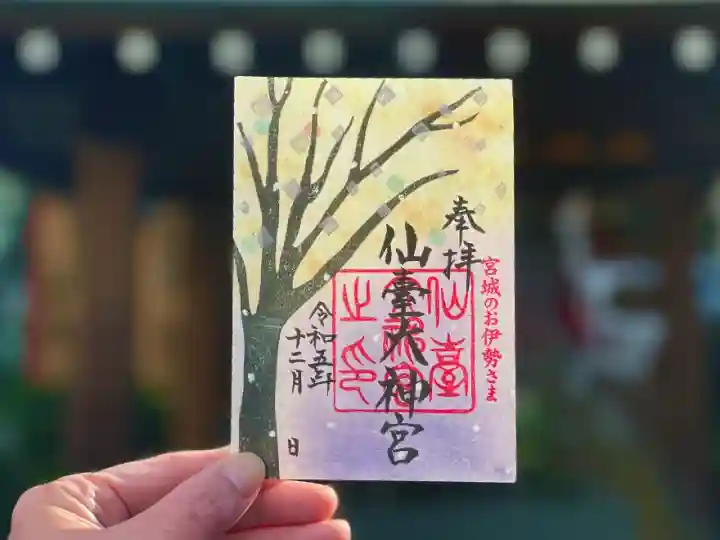 奉拝
宮城のお伊勢さま
仙臺大神宮
令和五年
十二月
日